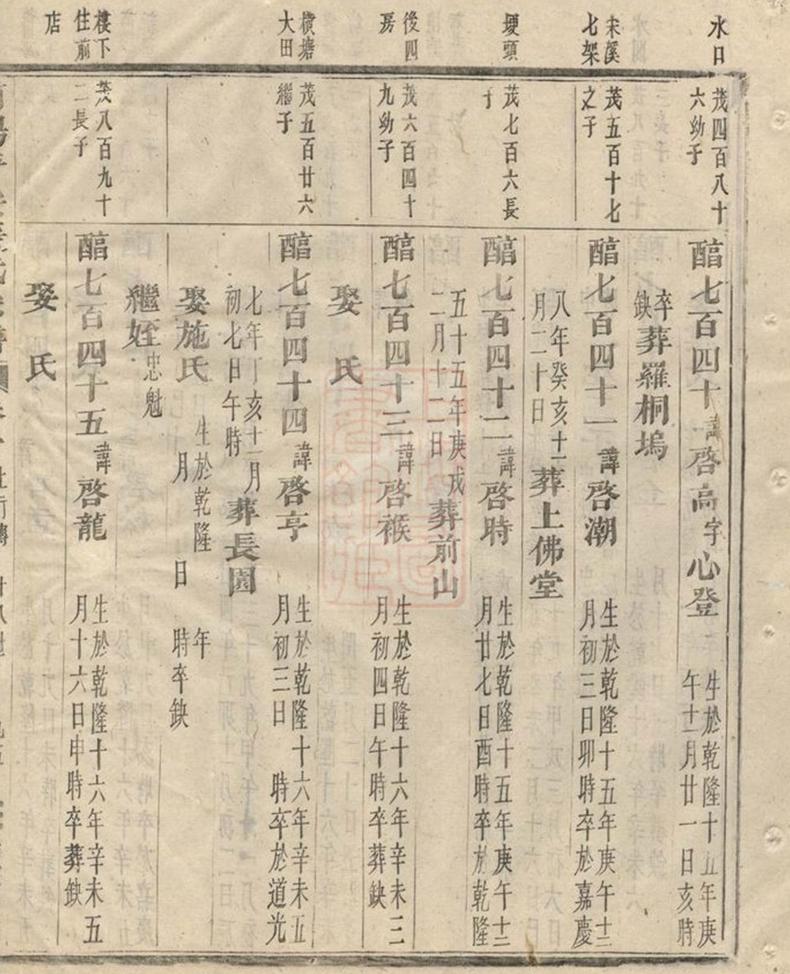 水口
茂四百八十
六幼子
酷七百四十 諱啓高字心登 生於乾隆十五年庚
午十二月廿一日亥時
卒
缺 葬羅桐塢
宋溪
七架
茂五百十七
之子
酷七百四十一 諱啓潮 生於乾隆十五年庚午十二
月初三日卯時卒於嘉慶
八年癸亥十一
月二十日 葬上佛堂
堘頭
茂七百六長
子
酷七百四十二 諱啓時 生於乾隆十五年庚午十二
月廿七日酉時卒於乾隆
五十五年庚戌
二月十二日 葬前山
後四
房
茂六百四十
九幼子
酷七百四十三 諱啓緱 生於乾隆十六年辛未三
月初四日午時卒葬缺
娶 氏
橫塘
大田
茂五百廿六
繼子
酷七百四十四 諱啓亨 生於乾隆十六年辛未五
月初三日 時卒於道光
七年丁亥十二月
初七日午時 葬長園
娶施氏 生於乾隆 年
月 日 時卒缺
繼姪 忠魁
樓下
住前
店
茂八百九十
二長子
酷七百四十五 諱啓龍 生於乾隆十六年辛未五
月十六日申時卒葬缺
娶 氏